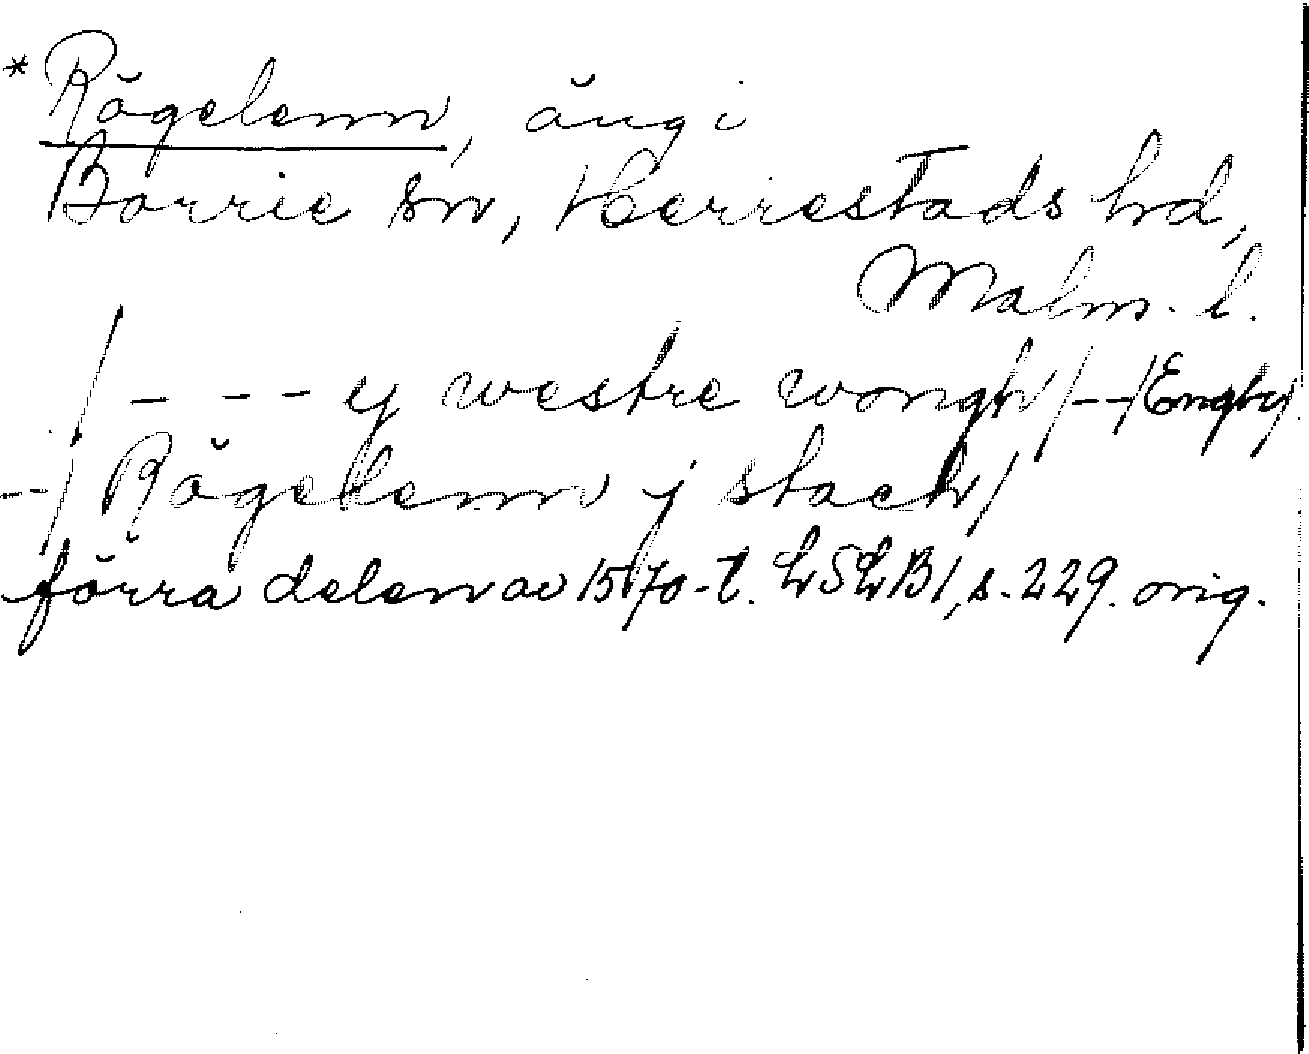 *Rögelenn, äng i
Borrie sn, Herrestads hd,
Malm. l.
/ - - - ej westre wongh/--/Engby
--/ Rögelenn j stack/
förra delen av 1570-t. LSLB1, s. 229. orig.